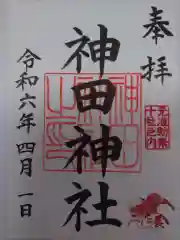 奉拝
神田神社
令和六年四月一日